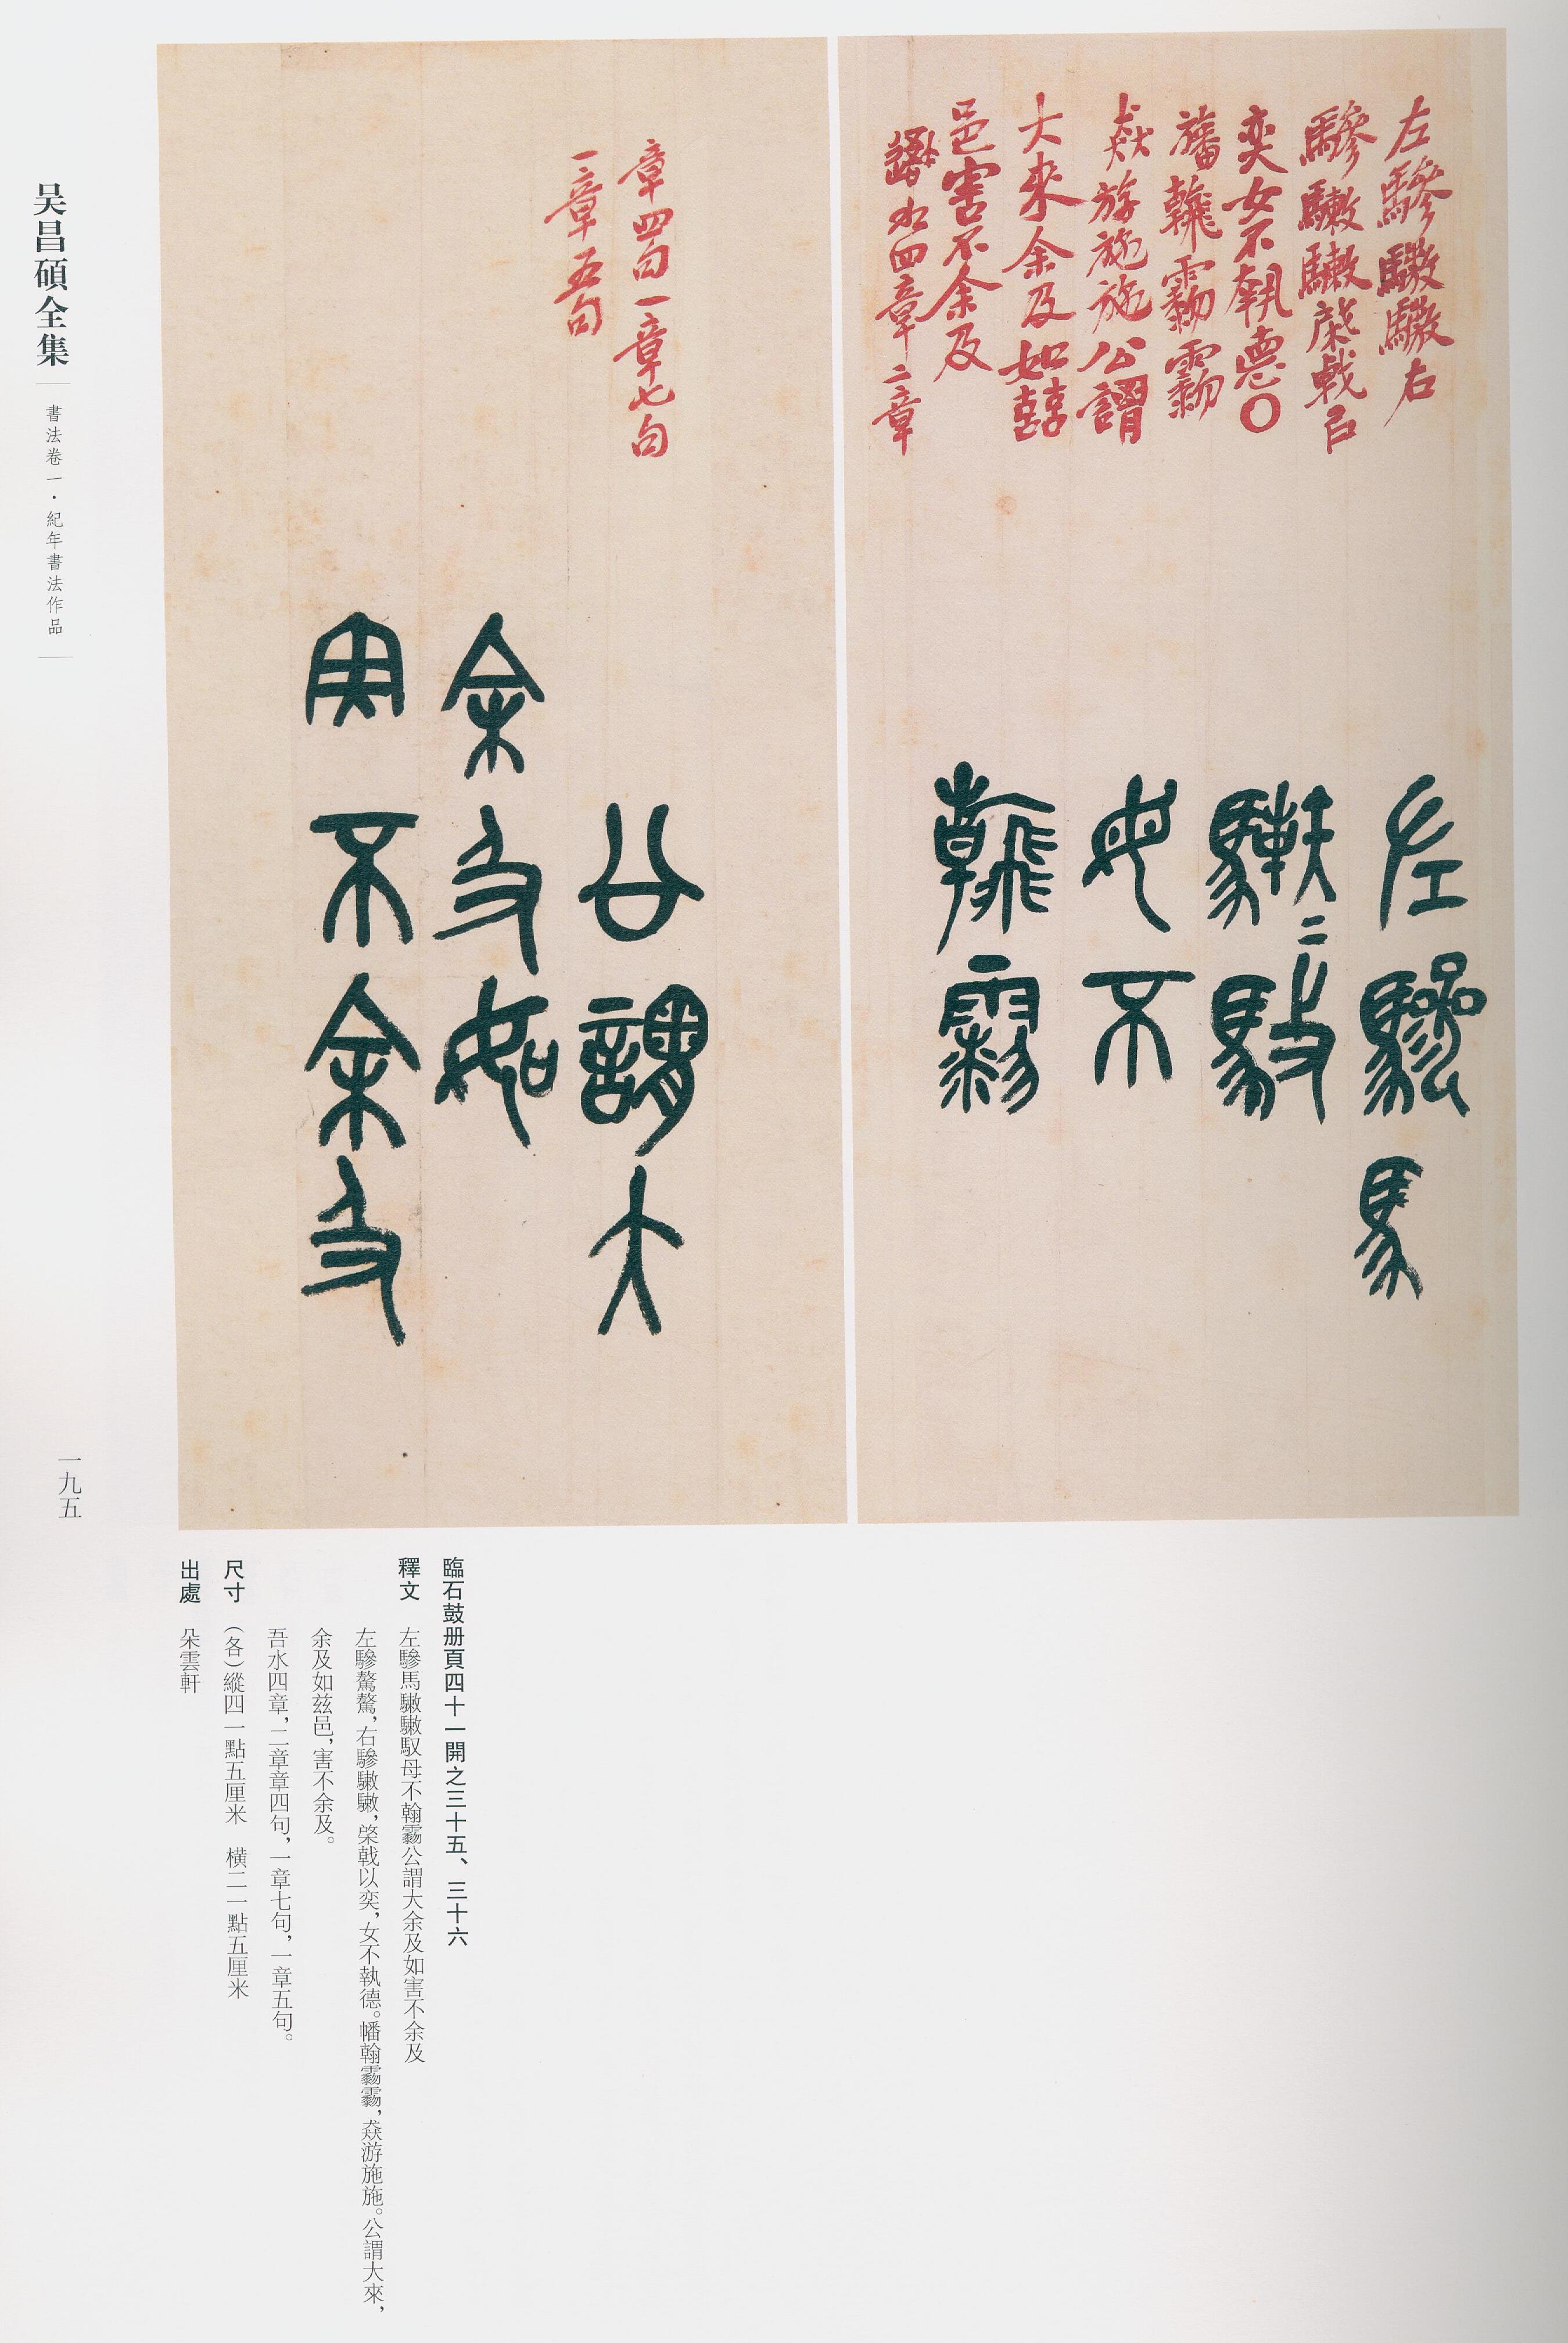 左驂驐驐右
驂驐驐棨戟㠯
奕女不執德〇
旛翰霧霧
猋游施施公謂
大來余及如囍
邑害不余及
水四章二章
左驂馬
二馭
母不
翰
章四句一章七句
一章五句
公謂大
余及如
害不余及
吴昌碩全集
書法卷一·紀年書法作品
一九五
臨石鼓册頁四十一開之三十五、三十六
釋文 左驂馬驐驐馭母不翰公謂大余及如害不余及
左驂驁驁,右驂驐驐,棨戟以奕,女不執德。幡翰,猋游施施。公謂大來,
余及如兹邑,害不余及。
吾水四章,二章章四句,一章七句,一章五句。
尺寸 (各)縱四一點五厘米 橫二一點五厘米
出處 朵雲軒